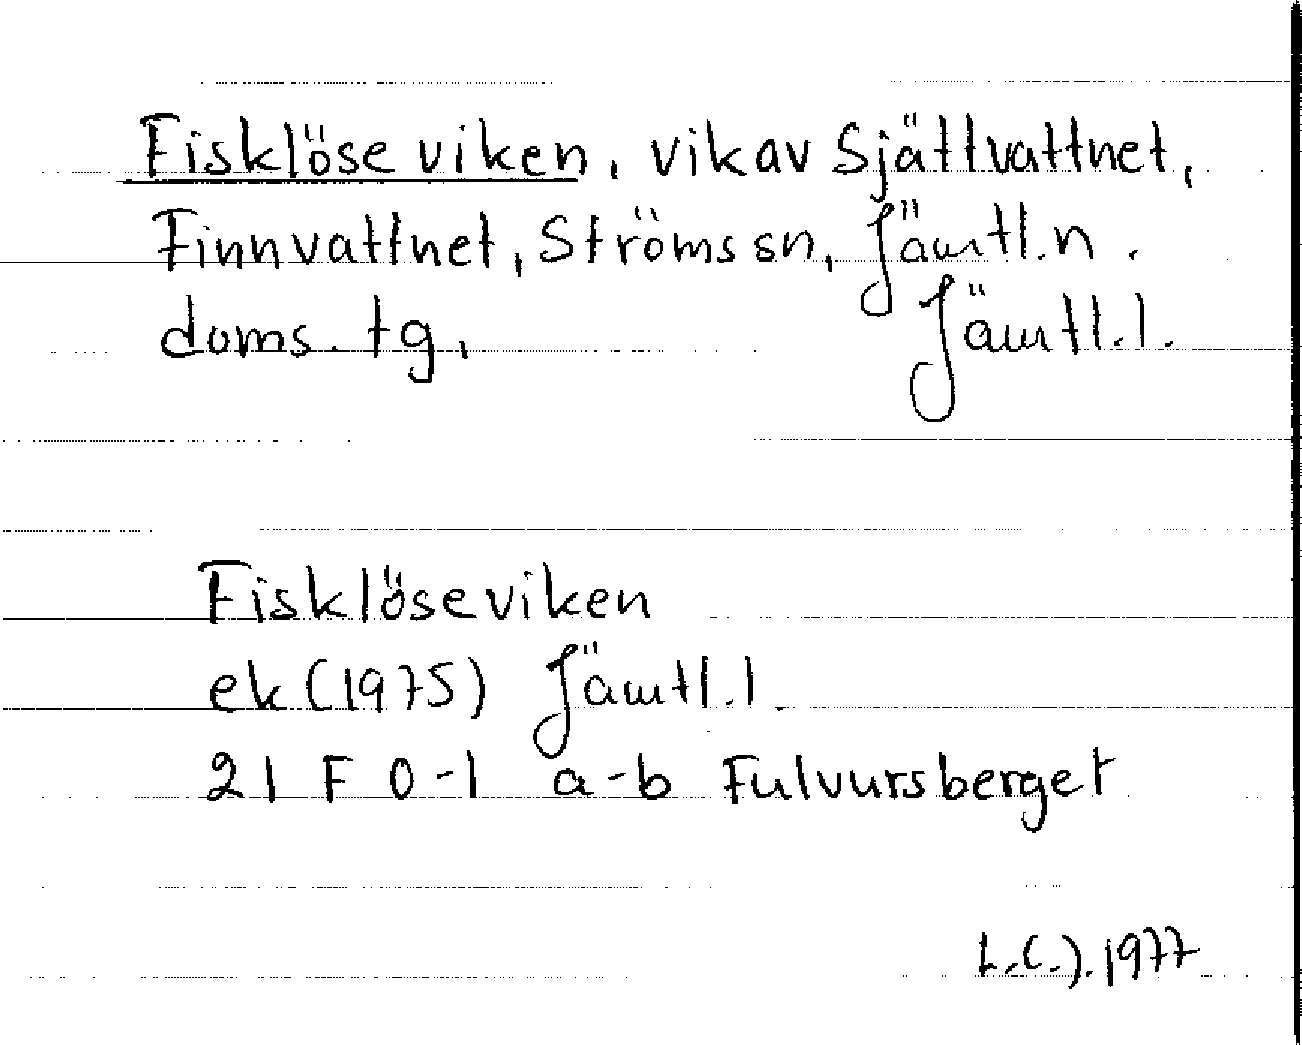 Fisklöseviken, vik av Sjättvattnet,
Finnvattnet, Ströms sn, Jämtl. n.
doms. tg,
Jämtl. l.
Fisklöseviken
ek (1975) Jämtl. l.
21 F 0-1 a-b Fulvursberget
L.C.). 1977